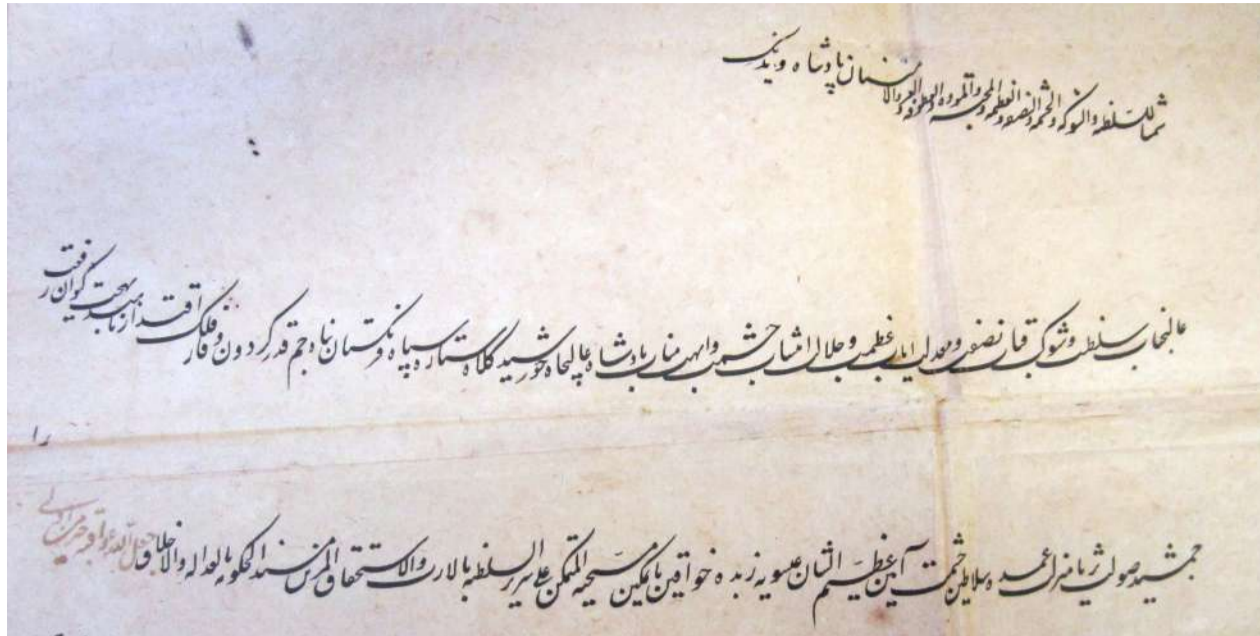 شمسا للسلطنه والشوکه والحشمه والنصفه والعظمه والمحبه والموده والعطوفه والعز والاحسان پادشاه وندیک
عالیجناب سلطنت و شوکت قباب نصفت و معدلت ایاب عظمت و جلالت انتساب حشمت و ابهت مناب پادشاه عالیجاه خورشید کلاه ستاره سپاه فرنکستان پناه جم قدر کردون وقار فلک اقتدار ناهید بهجت کیوان رفعت
را
جمشید صولت ثریا منزلت عمده سلاطین حشمت آیین عظیم الشان عیسویه زبده خواقین با تمکین مسیحیه المتمکن علی سریر السلطنه بالارث والاستحقاق المزین مسند الحکومه بالعداله والاخلاق جعل الله عواقبه خیرا من